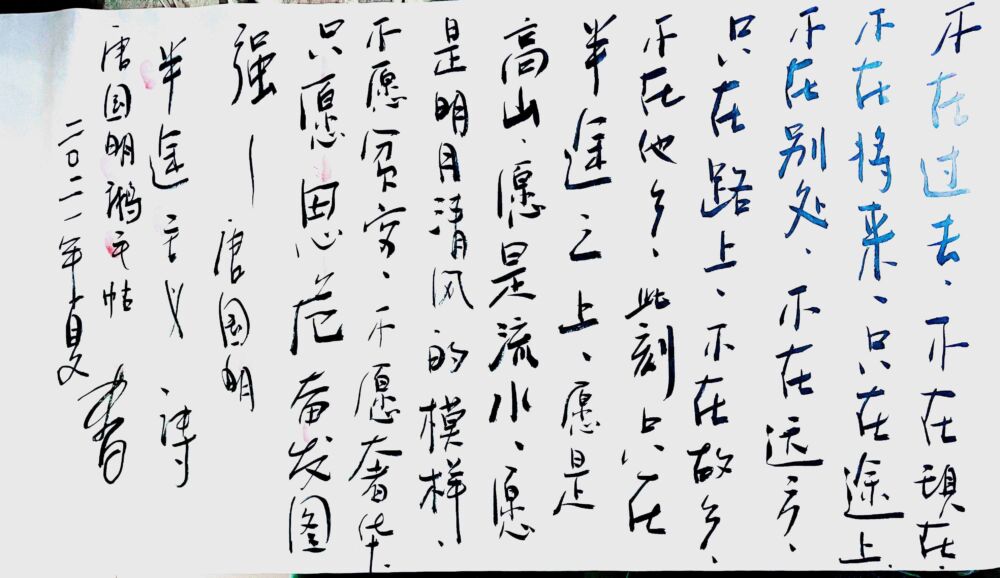 不在过去、不在现在、
不在将来、只在途上
不在别处、不在远方、
只在路上、不在故乡、
不在他乡、此刻只在
半途之上、愿是
高山、愿是流水、愿
是明月清风的模样、
不愿贫穷、不愿奢华、
只愿思危奋发图
强——唐国明
半途主义诗
唐国明鹅毛帖
二〇二一年夏 书